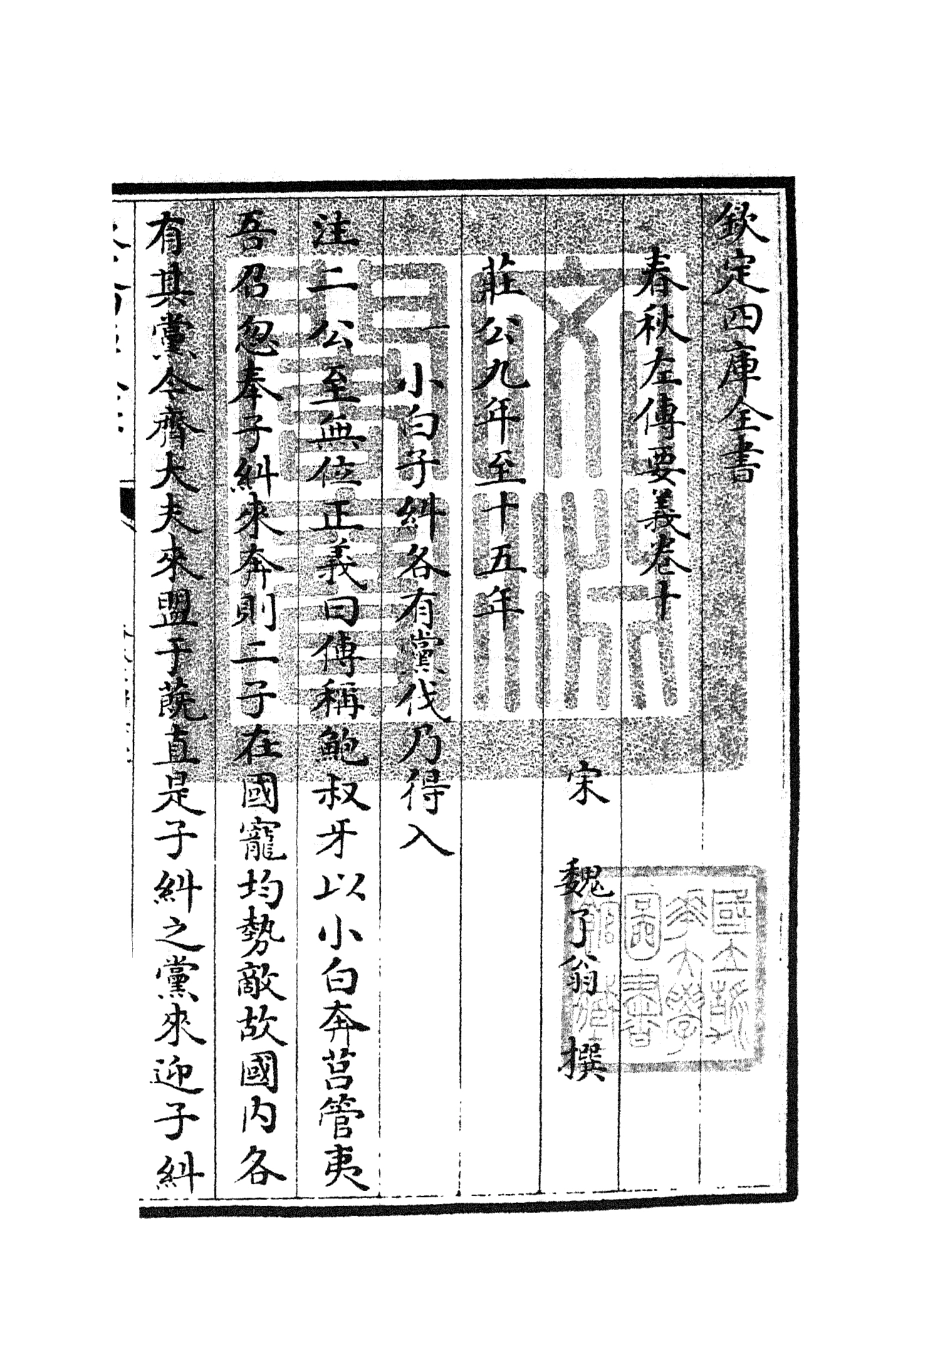 欽定四庫全書
春秋左傳要義卷十
宋　魏了翁　撰
莊公九年至十五年
一小白子糾各有黨伐乃得入
注二公至無位正義曰傳稱鮑叔牙以小白奔莒管夷
吾召忽奉子糾來奔則二子在國寵均勢敵故國内各
有其黨令齊大夫來盟于蔇直是子糾之黨來迎子糾